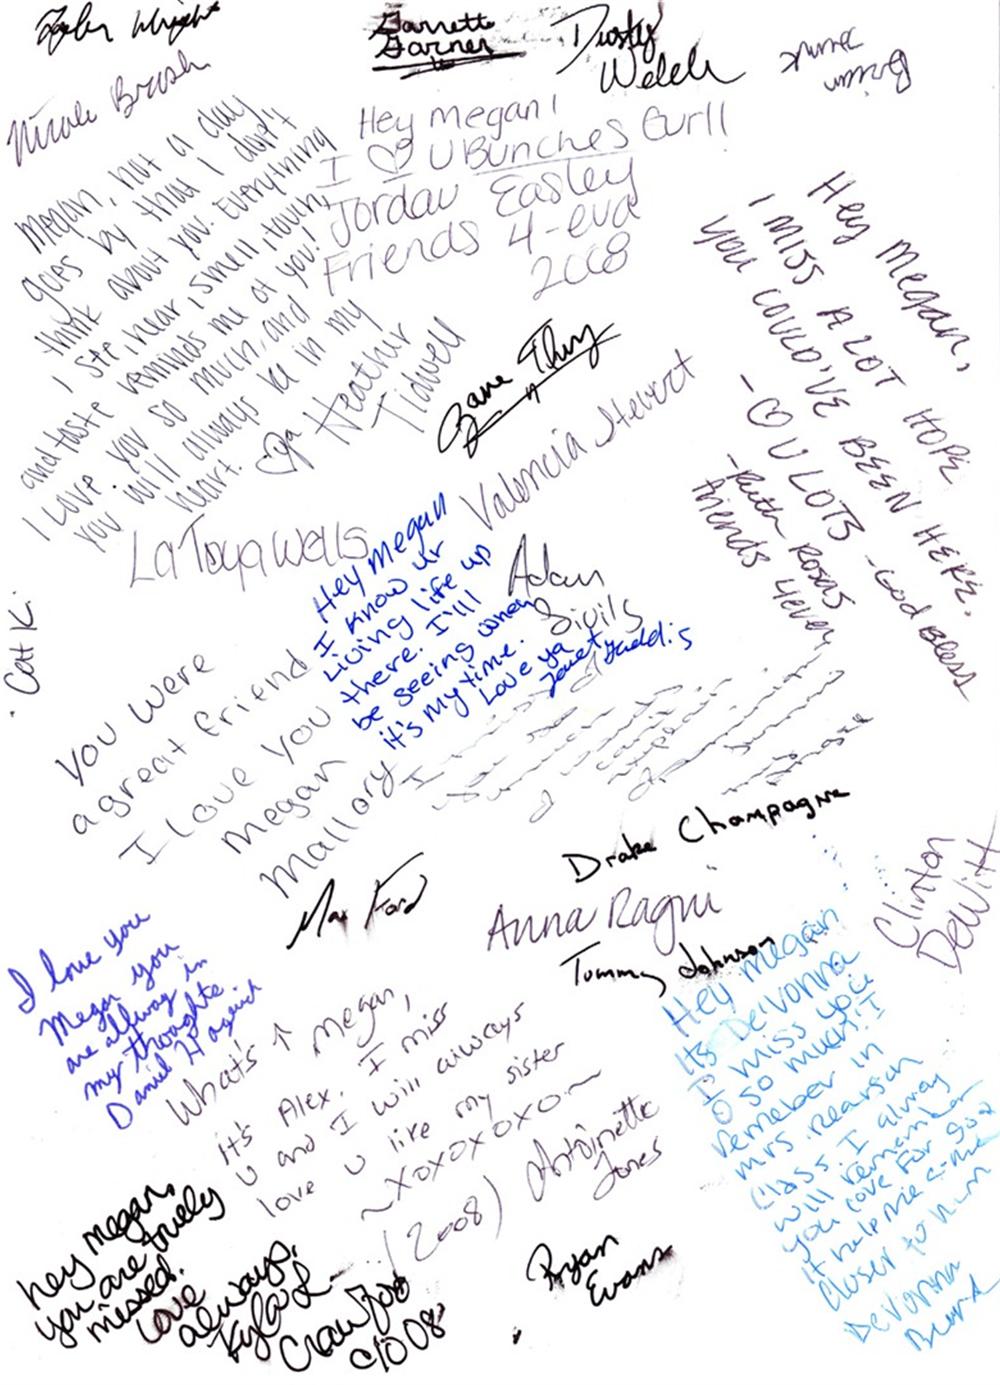 Wright
Garrett
Garner
Dusty
Welch
Brian
Nicole Brosh
Megan, not a day
goes by that I don't
think about you. Everything
I see, hear, smell, touch,
and taste reminds me of you!
I love you so much, and
you will always be in my
heart. ♡ya Heather
Tidwell
Hey Megan!
I ♡ U Bunches Gurl!
Jordan Easley
Friends 4-eva
2008
Hey Megan,
I MISS A LOT HOPE
YOU COULD'VE BEEN HERE.
- ♡ U LOTS - God Bless
- Ruth Rosas
friends 4ever
Zane
Valencia Stewart
LaToya Wells
Hey Megan
I know ur
Living life up
there. I'll
be seeing when
it's my time.
Love ya
Janet Gaddis
Adam
Sivils
Catt K.
You were
a great friend
I love you
Megan
Mallory
Drake Champagne
Max Ford
Anna Ragni
Tommy Johnson
Clinton
DeWitt
I love you
Megan you
are allway in
my thoughts
Daniel H
What's ↑ Megan,
it's Alex. I miss
u and I will always
love u like my sister
~XOXOXOXO~
(2008) Antoinette
Jones
Hey Megan
Its Devonna
I miss you
O so much! I
remeber in
mrs. rearson
Class. I alway
will remember
you love for God
it help me come
Closer to him
Devonna
hey megan,
you are truely
missed.
Love
always,
Kyla
Crawford
c/o 08
Ryan
Evans